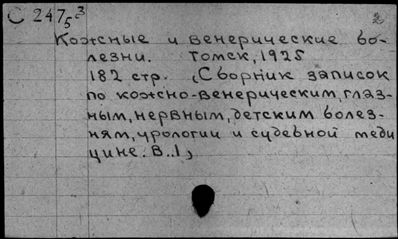 С 247 3
5
2
Кожные и венерические бо-
лезни. Томск, 1925
182 стр. (Сборник записок
по кожно-венерическим, глаз-
ным, нервным, детским болез-
ням, урологии и судебной меди
цине. В..1)